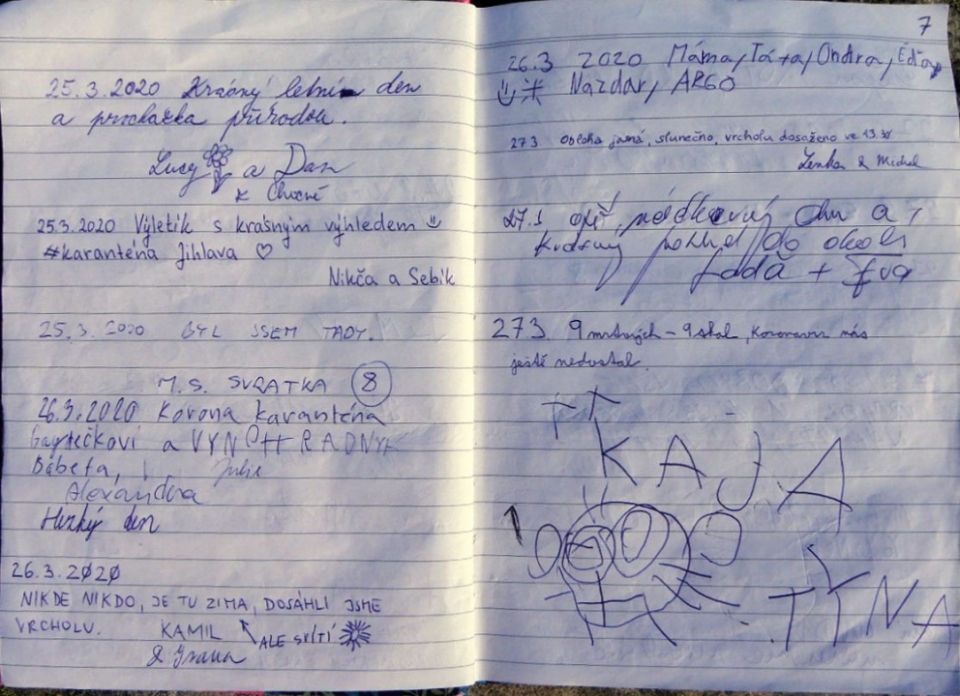 25.3.2020 Krásný letní den
a procházka přírodou.
Lucy a Dan
z Chocně
25.3.2020 Výletík s krásným výhledem
#karanténa Jihlava ♡
Nikča a Sebik
25.3.2020 BYL JSEM TADY.
M.S. SVRATKA 8
26.3.2020 Korona karanténa
a
Babeta, Julie
Alexandra
Hezký den
26.3.2020
NIKDE NIKDO, JE TU ZIMA, DOSÁHLI JSME
VRCHOLU. KAMIL ALE SVÍTÍ
& Ivana
7
26.3 2020 Máma, Táta, Ondra, Éďa,
Nazdar, ARGO
27.3 Obloha jasná, slunečno, vrcholu dosaženo ve 13.
Lenka & Michal
27.3 opět nádherný den a
krásný pohled do okolí
+ Eva
27.3. 9 mrtvých – 9 skal, koronavir nás
ještě nedostal.
KAJA
TÝNA